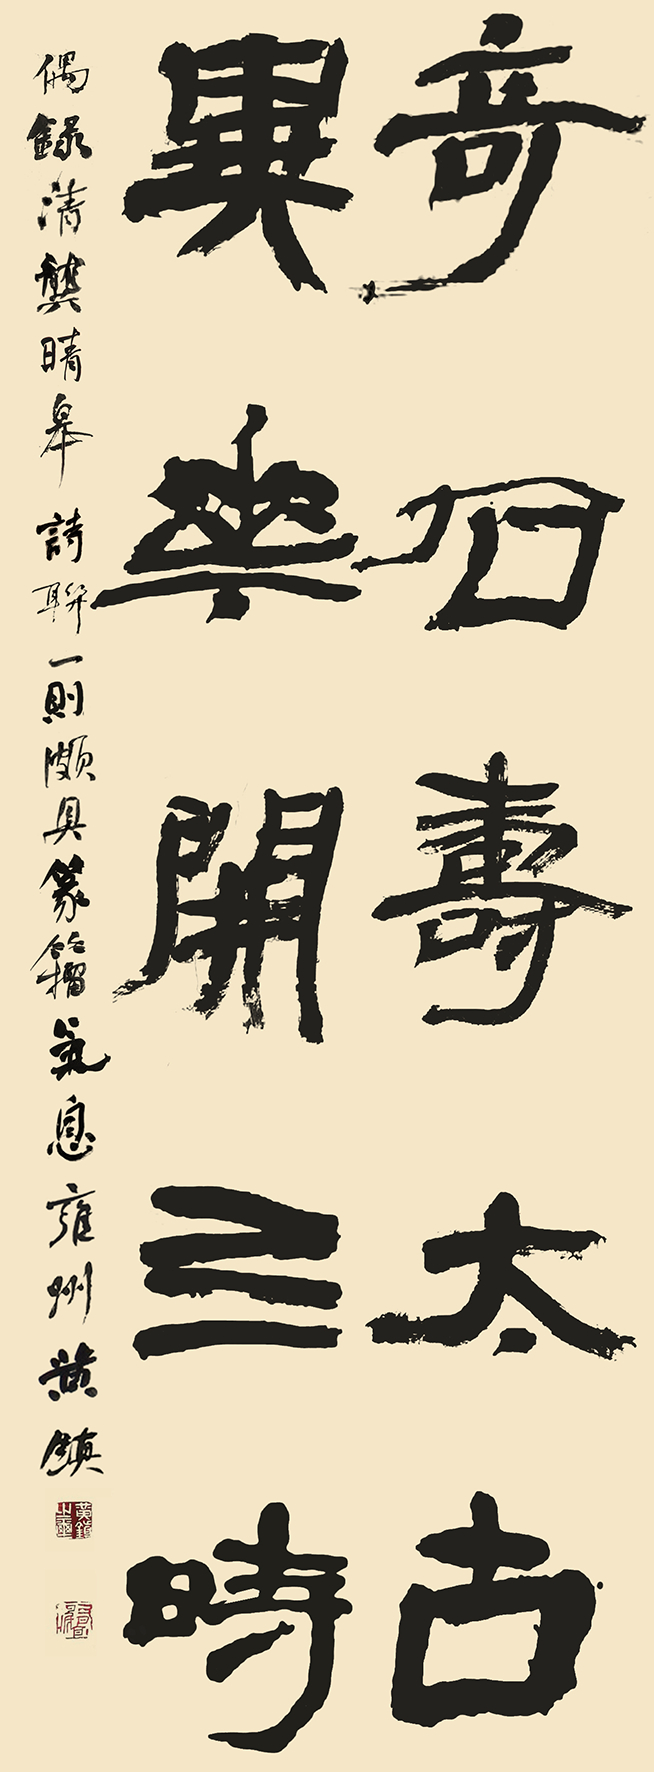 奇石壽太古
異華開三時
偶録清龔晴皋詩聯一則頗具篆籀氣息雍州黄鎮